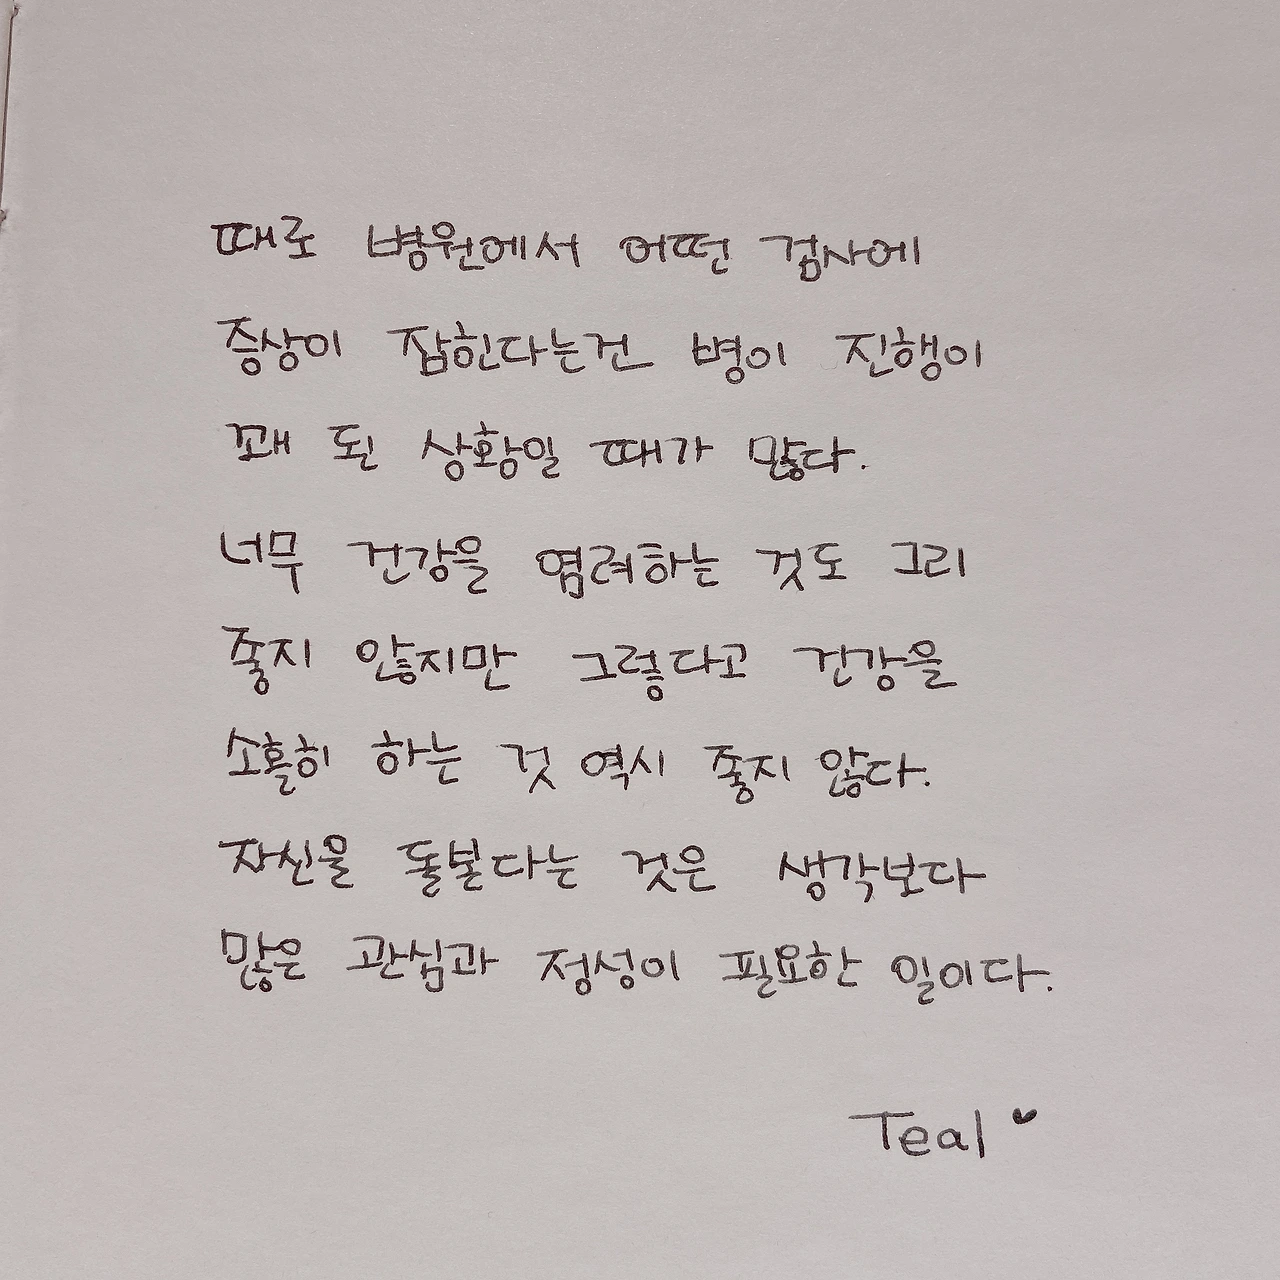 때로 병원에서 어떤 검사에
증상이 잡힌다는건 병이 진행이
꽤 된 상황일 때가 많다.
너무 건강을 염려하는 것도 그리
좋지 않지만 그렇다고 건강을
소홀히 하는 것 역시 좋지 않다.
자신을 돌본다는 것은 생각보다
많은 관심과 정성이 필요한 일이다.
Teal